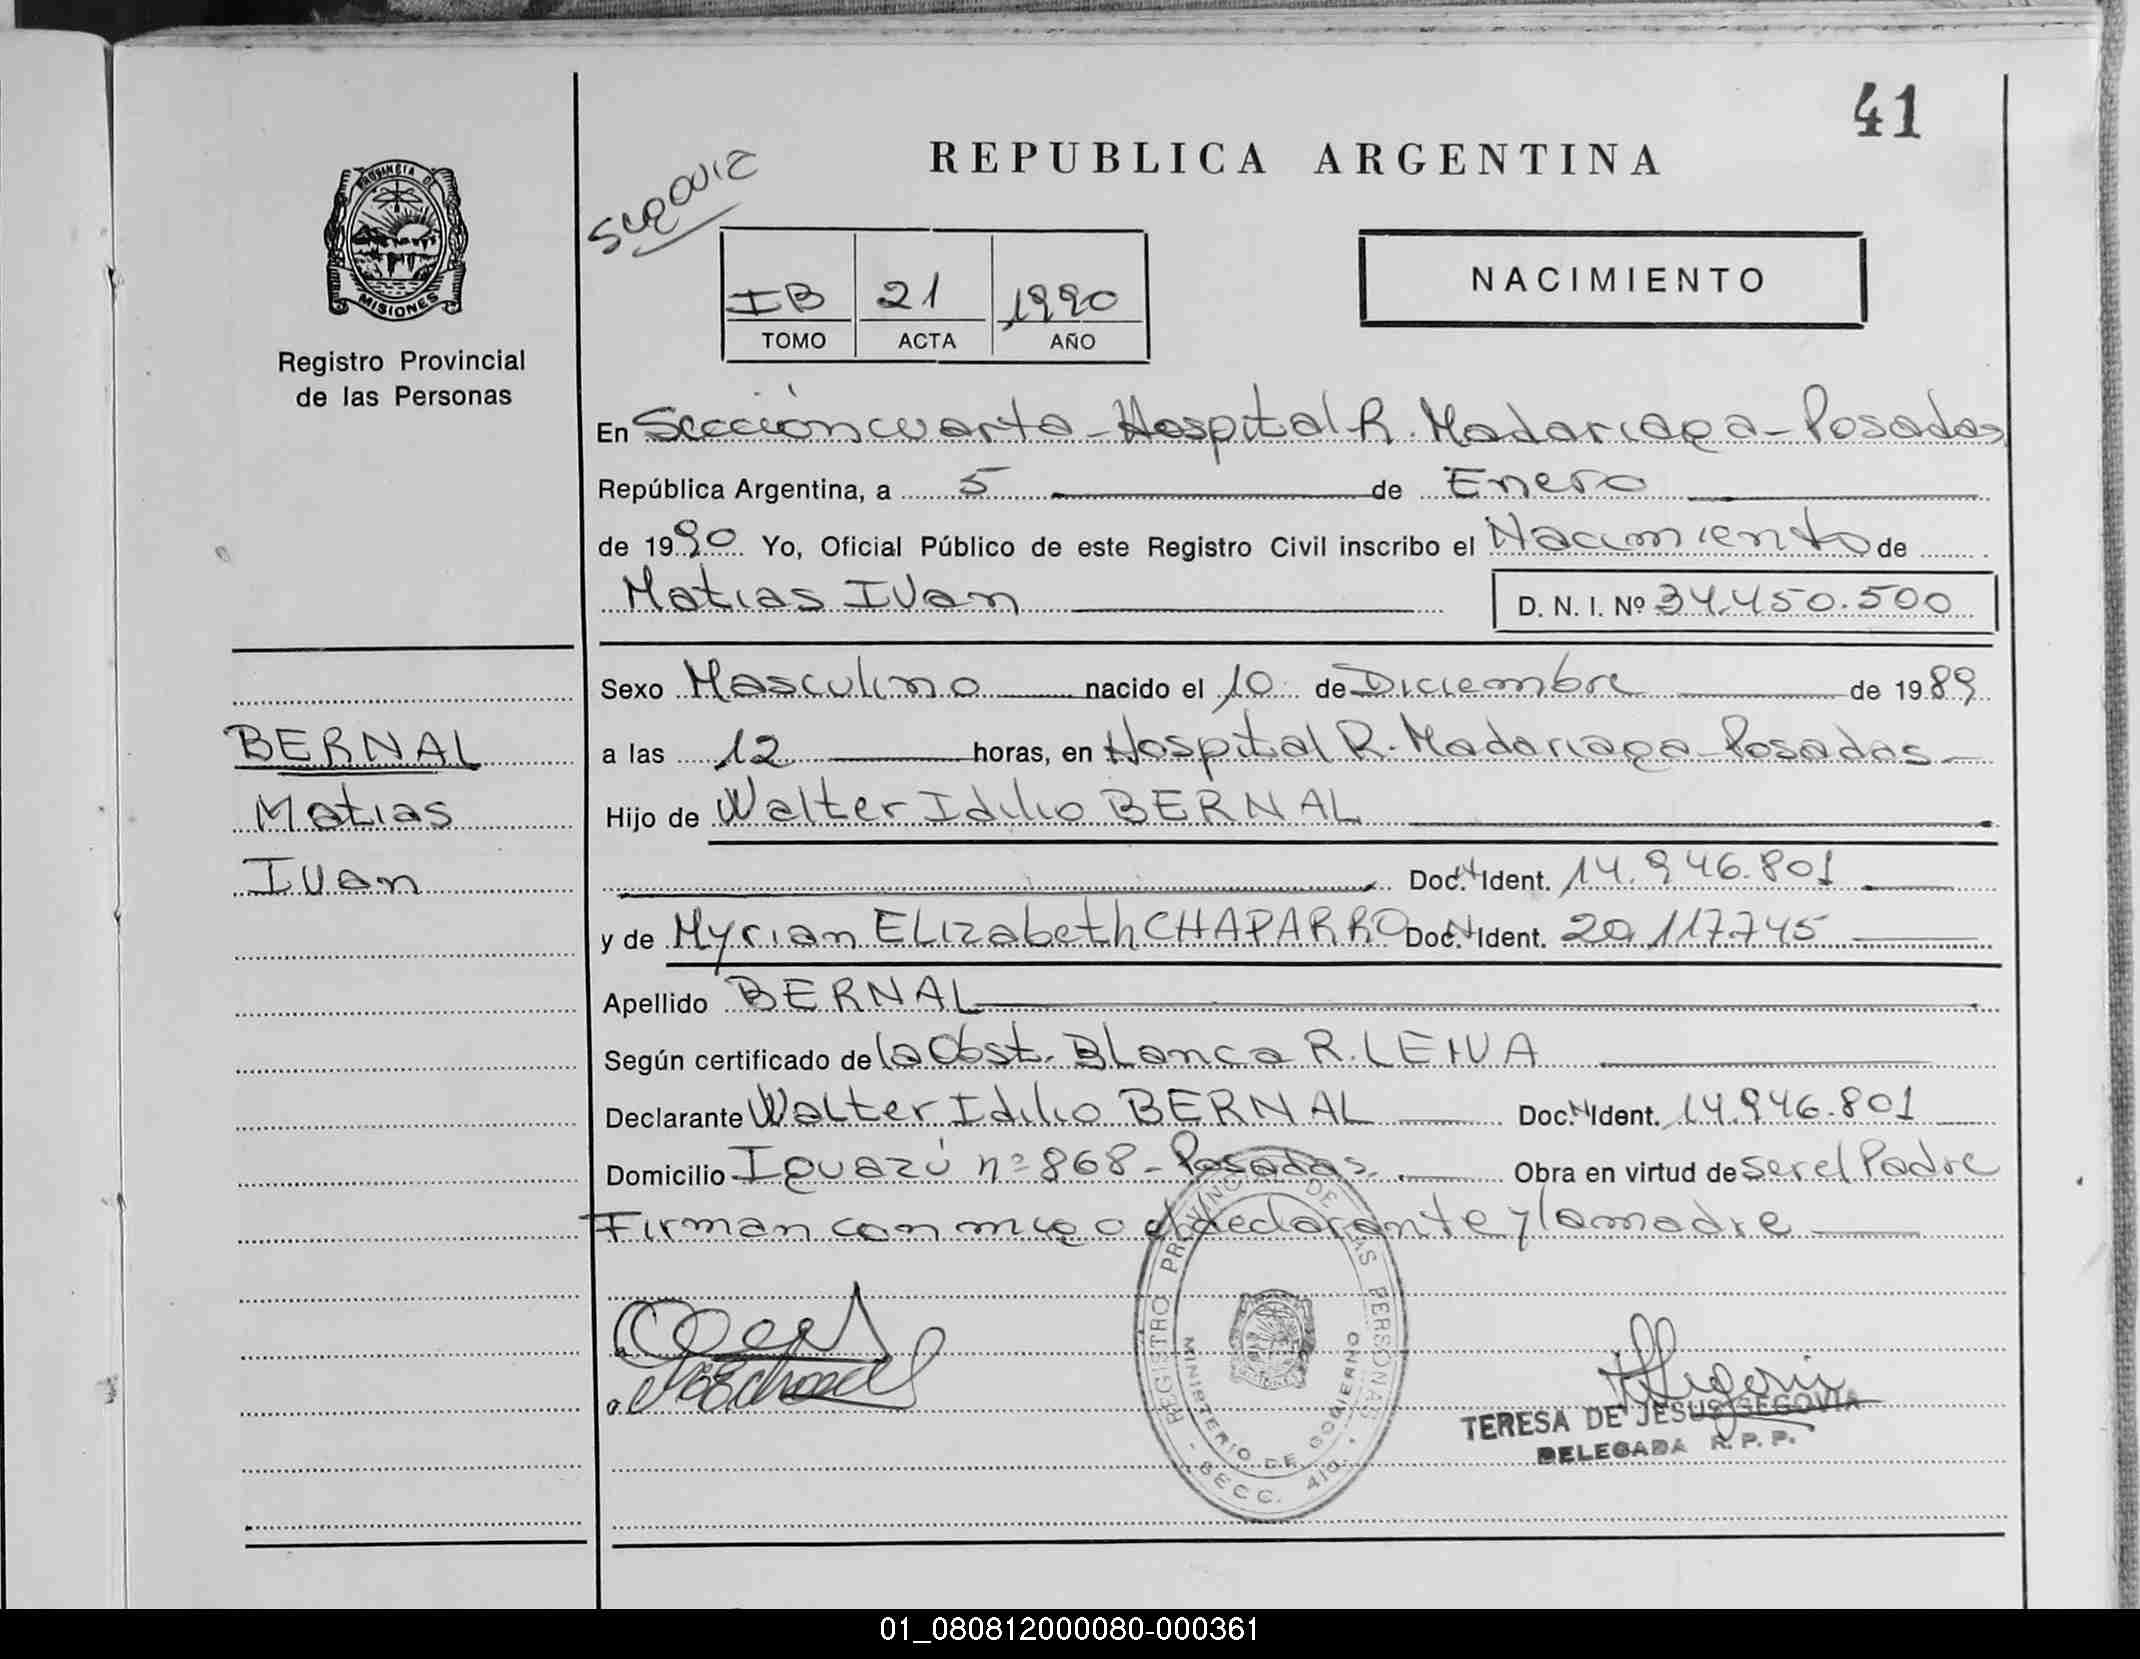 41
REPUBLICA ARGENTINA
PROVINCIA DE
MISIONES
Registro Provincial
de las Personas
Segovia
IB 21 1990
TOMO ACTA AÑO
NACIMIENTO
En Sección cuarta - Hospital R. Madariaga - Posadas
República Argentina, a 5 de Enero
de 1990 Yo, Oficial Público de este Registro Civil inscribo el Nacimiento de
Matias Ivan D. N. I. Nº 34.450.500
Sexo Masculino nacido el 10 de Diciembre de 1989
BERNAL
Matias
Ivan
a las 12 horas, en Hospital R. Madariaga - Posadas -
Hijo de Walter Idilio BERNAL
Doc. N Ident. 14.946.801
y de Myrian ELizabeth CHAPARRO Doc. N Ident. 20.117.745
Apellido BERNAL
Según certificado de la Obst. BLanca R. LEIVA
Declarante Walter Idilio BERNAL Doc. N Ident. 14.946.801
Domicilio Iguazú nº 868 - Posadas Obra en virtud de ser el Padre
Firman conmigo el declarante y la madre
REGISTRO PROVINCIAL DE LAS PERSONAS
MINISTERIO DE GOBIERNO
SECC. 4ta.
TERESA DE JESUS SEGOVIA
DELEGADA R. P. P.
01_080812000080-000361